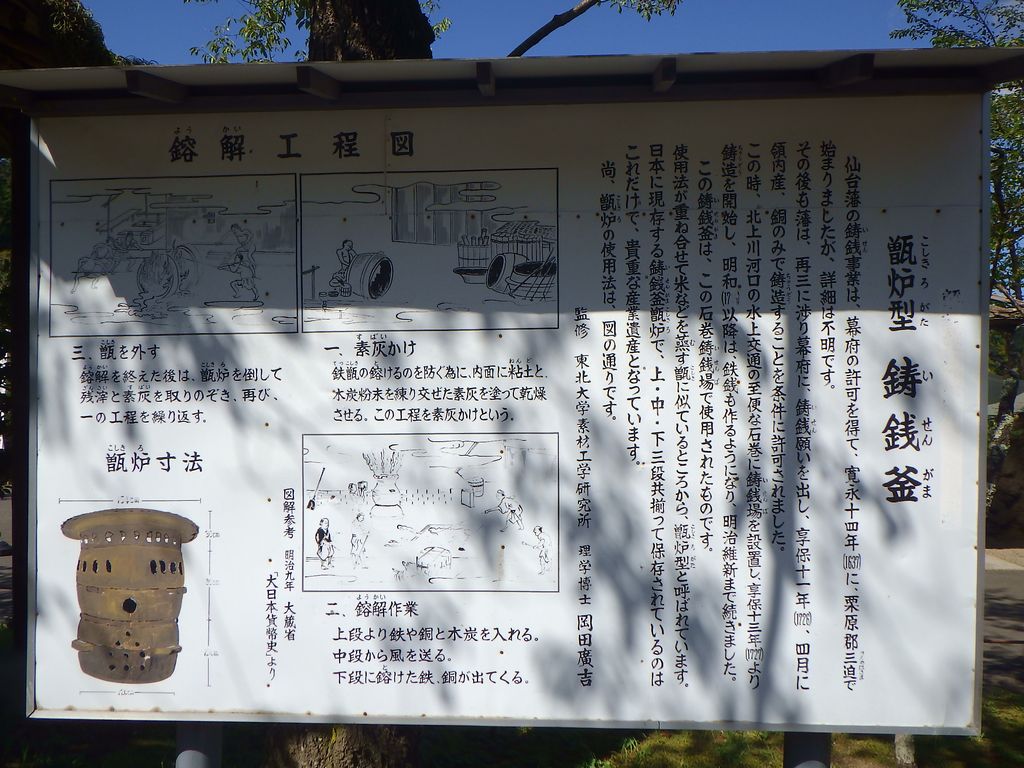 甑炉型 鋳銭釜
こしきろがた いせんがま
仙台藩の鋳銭事業は、幕府の許可を得て、寛永十四年(1637)に、栗原郡三迫で
始まりましたが、詳細は不明です。
その後も藩は、再三に渉り幕府に、鋳銭願いを出し、享保十一年(1726)、四月に
領内産、銅のみで鋳造することを条件に許可されました。
この時、北上川河口の水上交通の至便な石巻に鋳銭場を設置し、享保十三年(1727)より
鋳造を開始し、明和以降は、鉄銭も作るようになり、明治維新まで続きました。
この鋳銭釜は、この石巻鋳銭場で使用されたものです。
使用法が重ね合せて米などを蒸す甑に似ているところから、甑炉型と呼ばれています。
日本に現存する鋳銭釜甑炉で、上・中・下三段共揃つて保存されているのは
これだけで、貴重な産業遺産となっています。
尚、甑炉の使用法は、図の通りです。
監修 東北大学素材工学研究所 理学博士 岡田廣吉
鎔解工程図
ようかい
一、素灰かけ
すばい
鉄甑の鎔けるのを防ぐ為に、内面に粘土と、
木炭粉末を練り交ぜた素灰を塗って乾燥
させる。この工程を素灰かけという。
二、鎔解作業
ようかい
上段より鉄や銅と木炭を入れる。
中段から風を送る。
下段に鎔けた鉄、銅が出てくる。
三、甑を外す
こしき
鎔解を終えた後は、甑炉を倒して
残滓と素灰を取りのぞき、再び、
一の工程を繰り返す。
図解参考 明治九年 大蔵省
「大日本貨幣史」より
甑炉寸法
こしきろ